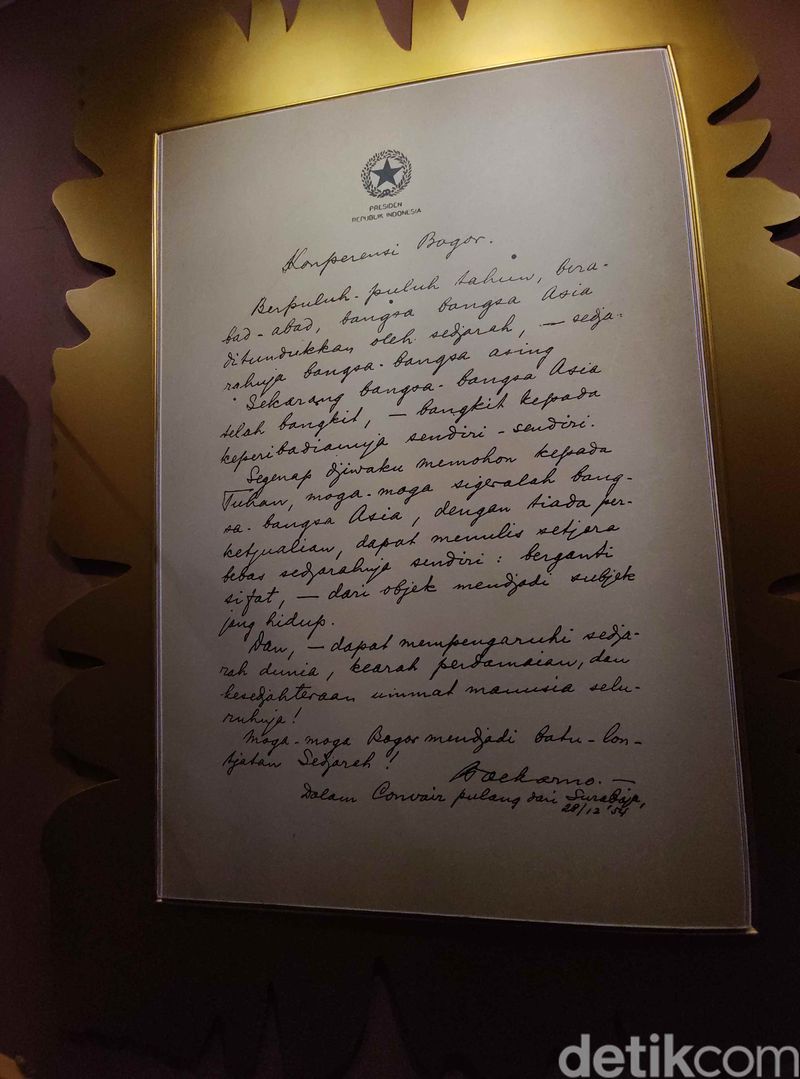 PRESIDEN
REPUBLIK INDONESIA
Konperensi Bogor.
Berpuluh-puluh tahun, bera-
bad-abad, bangsa bangsa Asia
ditundukkan oleh sedjarah, — sedja-
rahnja bangsa-bangsa asing
Sekarang bangsa-bangsa Asia
telah bangkit, — bangkit kepada
keperibadiannja sendiri-sendiri.
Segenap djiwaku memohon kepada
Tuhan, moga-moga sigeralah bang-
sa-bangsa Asia, dengan tiada per-
ketjualian, dapat menulis setjara
bebas sedjarahnja sendiri: berganti
sifat, — dari objek mendjadi subjek
jang hidup.
Dan, — dapat mempengaruhi sedja-
rah dunia, kearah perdamaian, dan
kesedjahteraan ummat manusia selu-
ruhnja!
Moga-moga Bogor mendjadi batu-lon-
tjatan Sedjarah!
Soekarno. —
Dalam Convair pulang dari Surabaja,
28/12 '54
detikcom